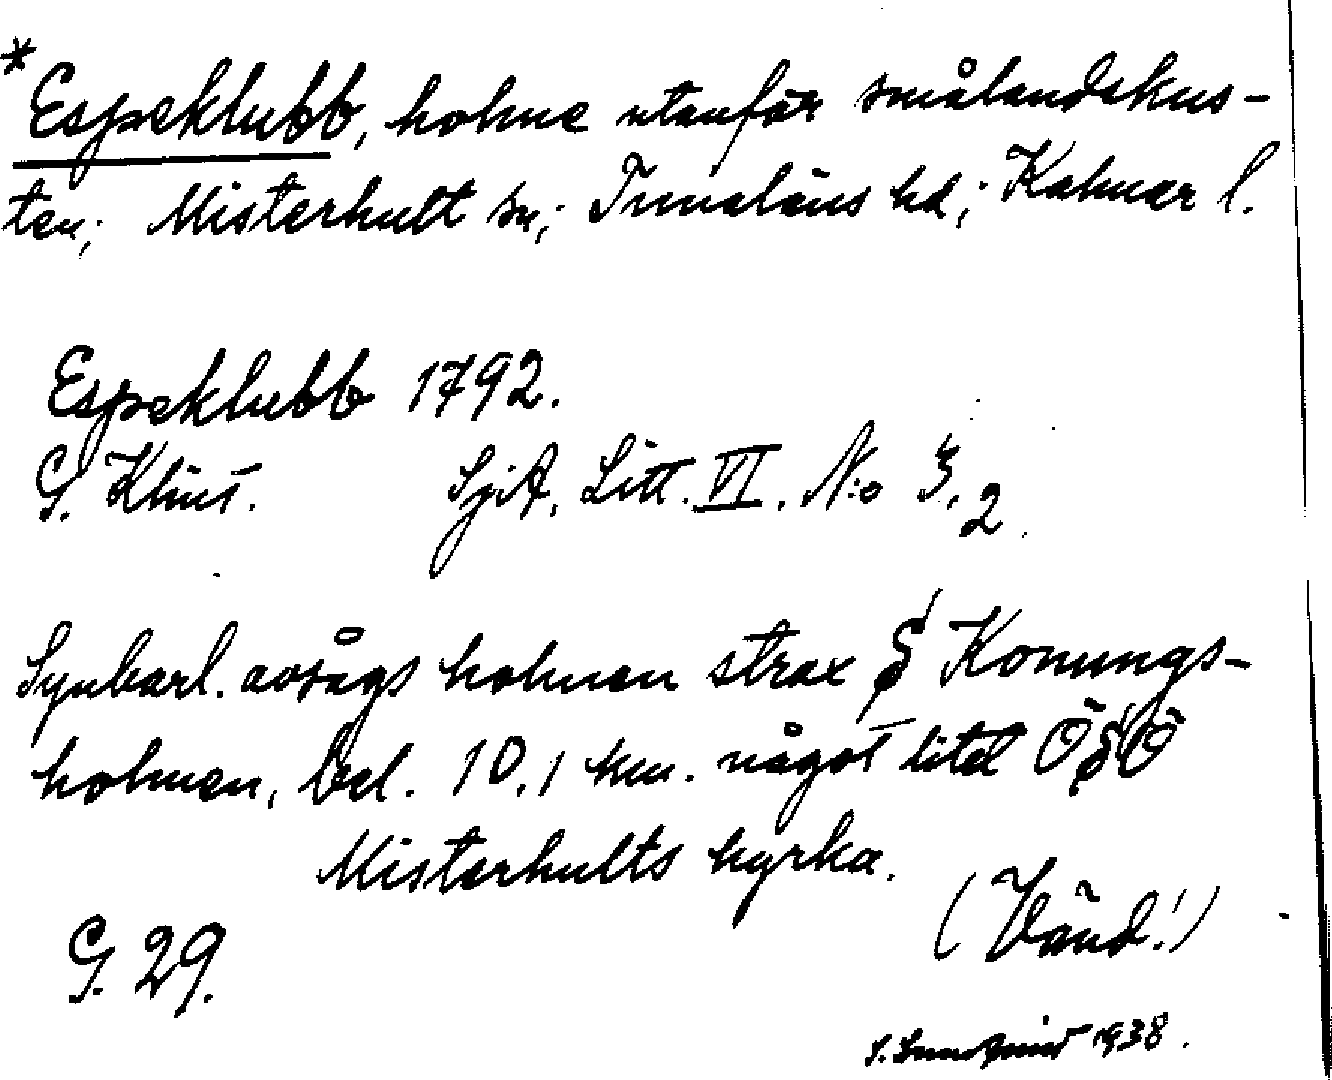 * Espeklubb, holme utanför smålandskus-
ten; Misterhult sn; Tunaläns hd; Kalmar l.
Espeklubb 1792.
G. Klint. SjA. Litt. VI. N:o 3,2
Synbarl. avsågs holmen strax S Konungs-
holmen, bel. 10,1 km. något litet ÖSÖ
Misterhults kyrka.
(Vänd!)
G. 29.
1938.